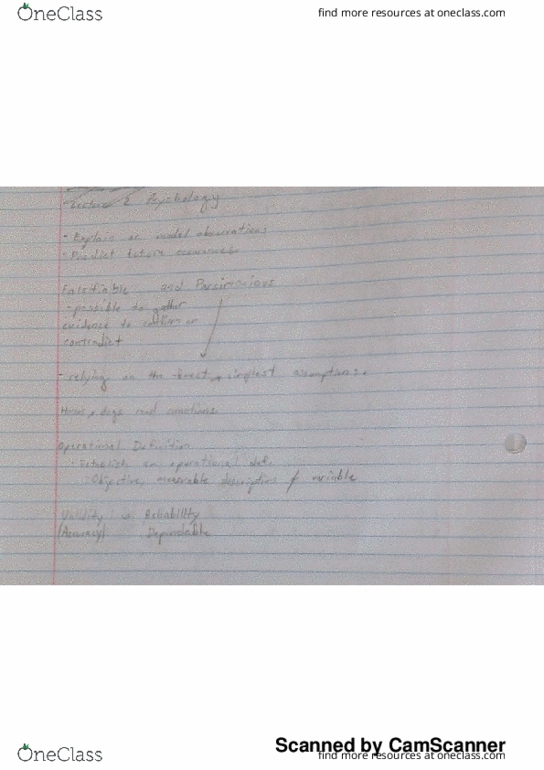 OneClass
find more resources at oneclass.com
Lecture 2 Psychology
- Explain or model observations
- Predict future
Falsifiable and Parsimonious
- possible to gather
evidence to confirm or
contradict
- relying on the fewest, simplest assumptions.
dogs read emotions
Operational Definition
- Establish an operational def.
- Objective, measurable description of variable
Validity vs Reliability
(Accuracy) Dependable
Scanned by CamScanner
OneClass
find more resources at oneclass.com